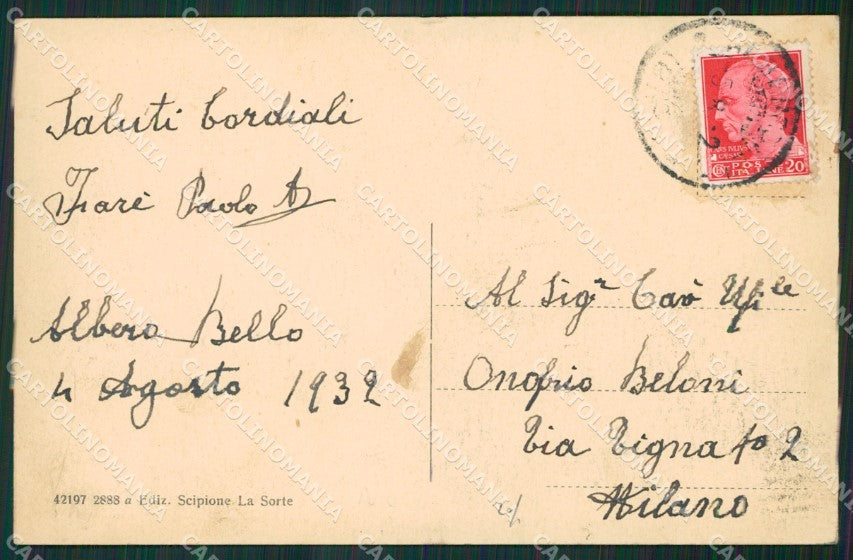 Saluti Cordiali
Paolo
Albero Bello
4 Agosto 1932
42197 2888 a Ediz. Scipione La Sorte
IVLIVS
CAESAR
POSTE
ITALIANE
CENT 20
Al Sigr Cav Uffle
Onofrio Beloni
Via Vigna No 2
Milano
CARTOLINOMANIA